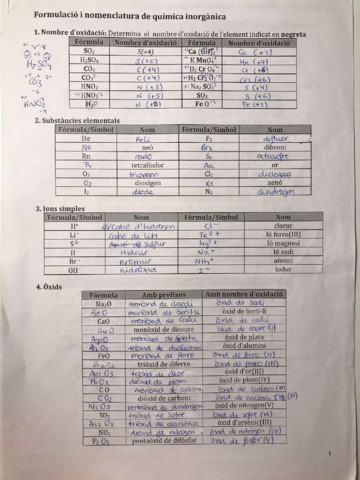 Formulació i nomenclatura de química inorgànica
1. Nombre d'oxidació: Determina el nombre d'oxidació de l'element indicat en negreta
Fórmula Nombre d'oxidació Fórmula Nombre d'oxidació
SO₂ S(+4)
H₂SO₄ S(+6) K MnO₄ Mn (+7)
CO₂ C (+4)
HNO₂ N (+3) Na₂ SO₃ S (+4)
SO₃ S (+6)
H₂O Fe O Fe (+2)
H₂SO₄
CO₃
HNO₂
2. Substàncies elementals
Fórmula/Símbol Nom Fórmula/Símbol Nom
He Heli F₂ difluor
Ne neó Br₂ dibrom
Rn radó S₈ octasofre
P₄ tetrafòsfor Au or
O₃ trioxigen Cl₂ diclor
O₂ dioxigen Xe xenó
I₂ diiode N₂ dinitrogen
3. Ions simples
Fórmula/Símbol Nom Fórmula/Símbol Nom
H⁺ Catió d'hidrogen Cl⁻ clorur
Li⁺ Catió de liti Fe³⁺ Ió ferro(III)
S²⁻ Sulfur Mg²⁺ Ió magnesi
H⁻ Hidrur Na⁺ Ió sodi
Br⁻ Bromur NH₄⁺ amoni
OH⁻ hidròxid I⁻ iodur
4. Òxids
Fórmula Amb prefixos Amb nombre d'oxidació
Na₂O monòxid de disodi òxid de sodi
BeO monòxid de beril·li òxid de beril·li
CaO monòxid de calci òxid de calci
Cu₂O monòxid de dicoure òxid de coure (I)
Ag₂O òxid de plata
Al₂O₃ triòxid de dialumini òxid d'alumini
FeO monòxid de ferro òxid de ferro (II)
triòxid de diferro òxid de ferro (III)
Au₂O₃ triòxid de dior òxid d'or(III)
PbO₂ diòxid de plom òxid de plom(IV)
CO monòxid de carboni òxid de carboni (II)
CO₂ diòxid de carboni òxid de carboni (IV)
N₂O₅ pentaòxid de dinitrogen òxid de nitrogen(V)
SO₃ triòxid de sofre òxid de sofre (VI)
As₂O₃ triòxid de diarsènic òxid d'arsènic(III)
NO₂ diòxid de nitrogen òxid de nitrogen (IV)
P₂O₅ pentaòxid de difòsfor òxid de fòsfor (V)
1